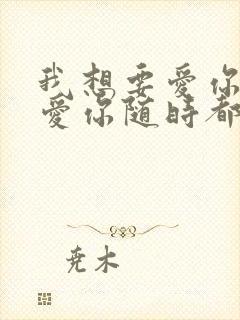 我想要爱你
爱你随时都
尧木